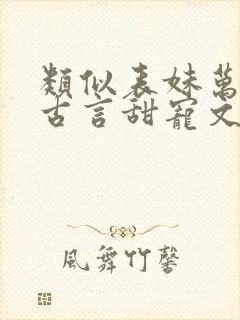 類似表妹萬
古言甜寵文
風舞竹馨